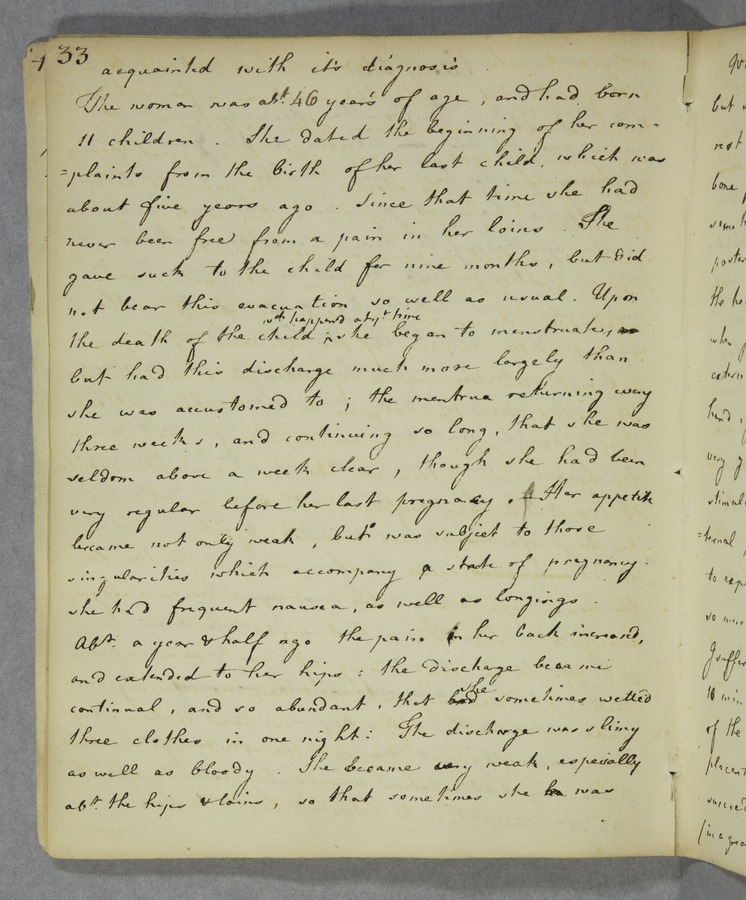 33
acquainted with it's diagnosis
The woman was abt. 46 years of age, and had born
11 children. She dated the beginning of her com-
=plaints from the birth of her last child, which was
about five years ago. Since that time she had
never been free from a pain in her loins. She
gave suck to the child for nine months, but did
not bear this evacuation so well as usual. Upon
wch happend at yt time
the death of the child, she began to menstruate,
but had this discharge much more largely than
she was accustomed to; the menstrua returning every
three weeks, and continuing so long, that she was
seldom above a week clear, though she had been
very regular before her last pregnacy. Her appetite
became not only weak, but was subject to those
singularities which accompany a state of pregnancy:
she had frequent nausea, as well as longings.
Abt. a year & half ago the pain in her back increased,
and extended to her hips: the discharge became
she
continual, and so abundant, that sometimes wetted
three clothes in one night: The discharge was slimy
as well as bloody. She became very weak, especially
abt. the hips & loins, so that sometimes she was
but
not
bone
the
when
very
to
of the